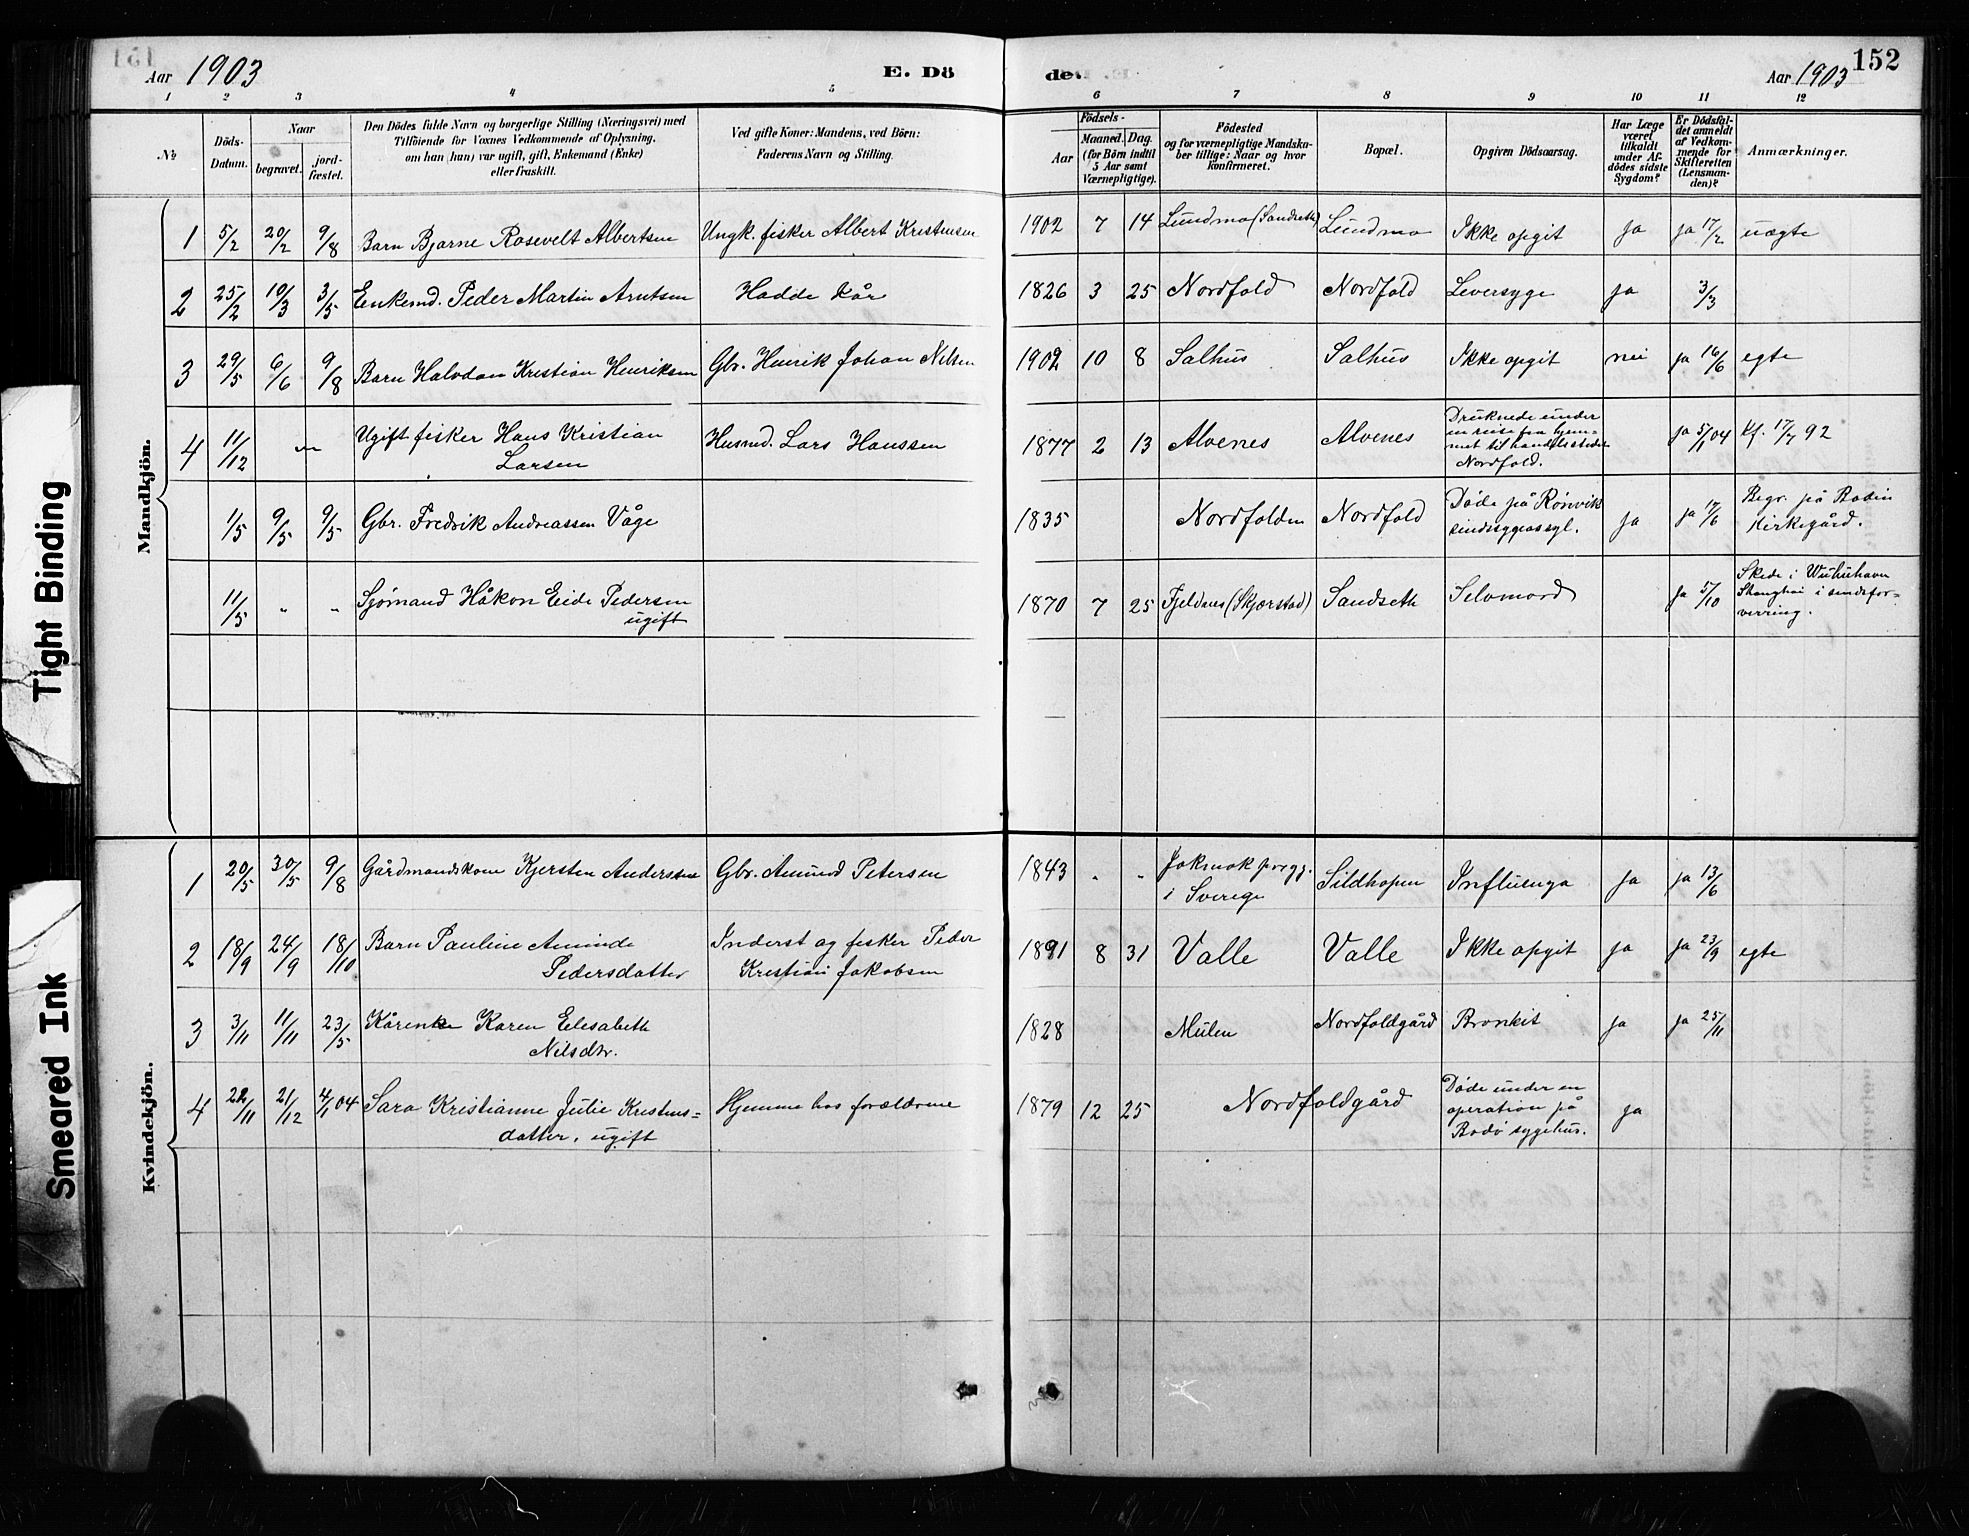 151
152
Aar 1903
E. Dö
de
Aar 1903
1 2 3 4 5 6 7 8 9 10 11 12
№
Döds-
Datum.
Naar
begravet.
jord-
fæstet.
Den Dödes fulde Navn og borgerlige Stilling (Næringsvei) med
Tilföiende for Voxnes Vedkommende af Oplysning,
om han (hun) var ugift, gift, Enkemand (Enke)
eller fraskilt.
Ved gifte Koner: Mandens, ved Börn:
Faderens Navn og Stilling.
Födsels-
Aar
Maaned. Dag.
(for Börn indtil
5 Aar samt
Værnepligtige).
Födested
og for værnepligtige Mandska-
ber tillige: Naar og hvor
konfirmeret.
Bopæl.
Opgiven Dödsaarsag.
Har Læge
været
tilkaldt
under Af-
dödes sidste
Sygdom?
Er Dödsfal-
det anmeldt
af Vedkom-
mende for
Skifteretten
(Lensman-
den)?
Anmærkninger.
Mandkjön.
1 5/2 20/2 9/8 Barn Bjarne Rosevelt Albertsen Ungk. fisker Albert Kristensen 1902 7 14 Lundmo (Sandseth) Lundmo Ikke opgit Ja ja 17/2 uægte
2 25/2 10/3 3/5 Enkemd. Peder Martin Arntsen Hadde kår 1826 3 25 Nordfold Nordfold Leversyge ja 3/3
3 29/5 6/6 9/8 Barn Halvdan Kristian Henriksen Gbr. Henrik Johan Nilsen 1902 10 8 Salhus Salhus Ikke opgit nei ja 16/6 egte
4 11/12 Ugift fisker Hans Kristian
Larsen
Husmd. Lars Hanssen 1877 2 13 Alvenes Alvenes
Druknede under
en reise fra hjem-
met til handelsstedet
Nordfold.
ja 5/1 04 Kf. 17/7 92
1/5 9/5 9/5 Gbr. Fredrik Andreassen Våge 1835 Nordfolden Nordfold
Døde på Rønvik
sindssygeasyl.
ja ja 17/6
Begr. på Bodin
Kirkegård.
11/5 " " Sjømand Håkon Eide Pedersen
ugift
1870 7 25 Fjeldnes (Skjærstad) Sandseth Selvmord Ja 5/10
Skede i Wuhuhavn
Shanghai i sindsfor-
virring.
Kvindekjön.
1 20/5 30/5 9/8 Gårdmandskone Kjersten Anderssen Gbr. Amund Petersen 1843 " "
Jokmok prergj.
i Sverige
Sildhopen Influenza Ja ja 13/6
2 18/9 24/9 18/10 Barn Pauline Aminde
Pedersdatter
Inderst og fisker Peder
Kristian Jakobsen
1891 8 31 Valle Valle Ikke opgit ja ja 23/9 egte
3 3/11 11/11 23/5 Kårenke Karen Elisabeth
Nilsdtr.
1828 Mulen Nordfoldgård Bronkit ja ja 25/11
4 22/11 21/12 4/1 04 Sara Kristianne Julie Kristens=
datter, ugift
Hjemme hos forældrene 1879 12 25 Nordfoldgård
Døde under en
operation på
Bodø sygehus.
ja
Tight Binding
Smeared Ink